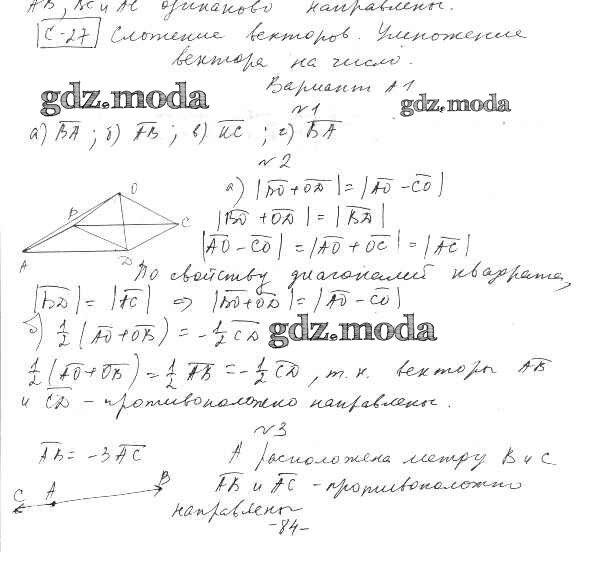 AB, BC и AC одинаково направлены.
С-27 Сложение векторов. Умножение
вектора на число.
Вариант А1
gdz.moda gdz.moda
№1
а) BA ; б) AB ; в) KC ; г) BA
№2
а) |BO+OD| = |AO-CO|
|BO+OD| = |BD|
|AO-CO| = |AO+OC| = |AC|
O
B
C
A
D
По свойству диагоналей квадрата,
|BD| = |AC| ⇒ |BO+OD| = |AO-CO|
б) 1/2 (AO+OB) = -1/2 CD gdz.moda
1/2 (AO+OB) = 1/2 AB = -1/2 CD, т.к. векторы AB
и CD - противоположно направлены.
№3
AB = -3AC A расположена между B и C.
C A B AB и AC - противоположно
направлены
-84-